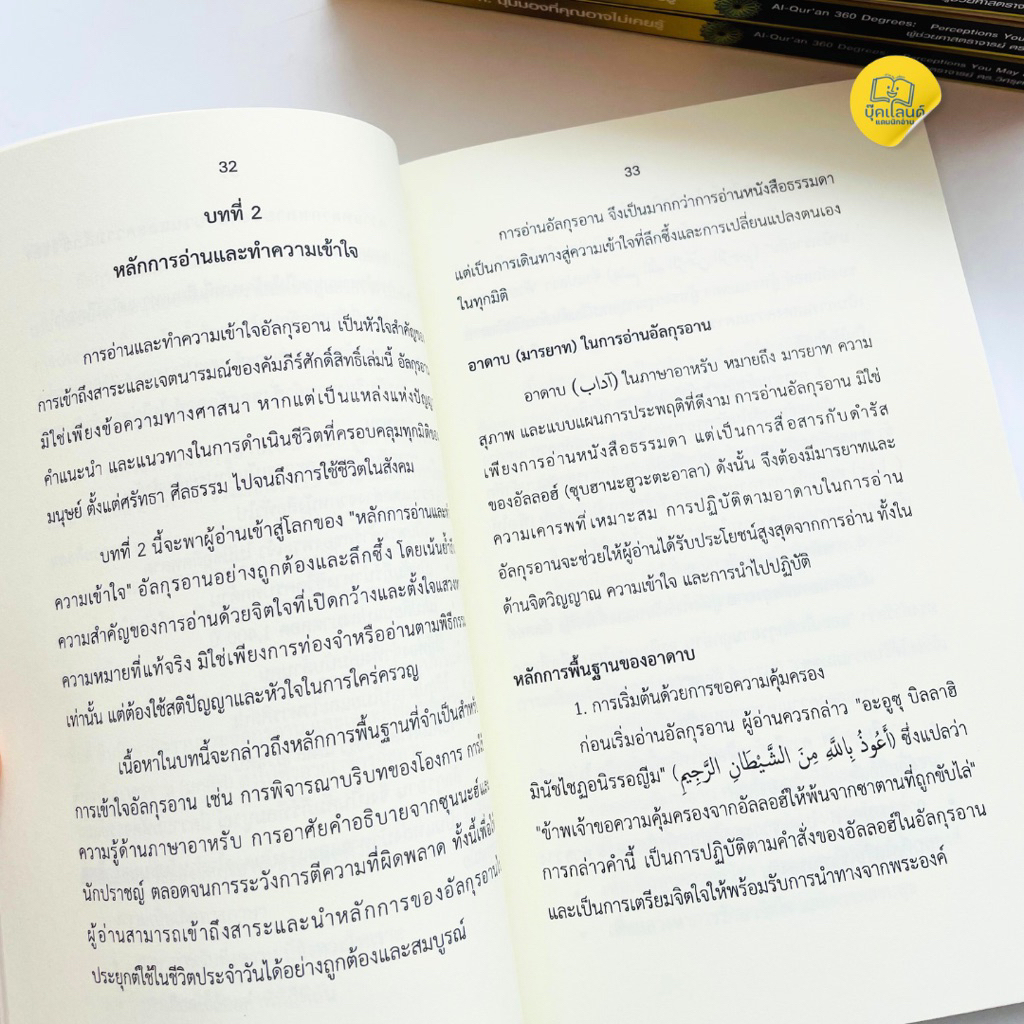 มุมมองที่คุณอาจไม่เคยรู้
Al-Qur'an 360 Degrees: Perceptions You
ผู้ช่วยศาสตราจารย์
Al-Qur'an 360 Degrees: Perceptions You May
บุ๊คแลนด์
แดนนักอ่าน
32
บทที่ 2
หลักการอ่านและทำความเข้าใจ
การอ่านและทำความเข้าใจอัลกุรอาน เป็นหัวใจสำคัญของ
การเข้าถึงสาระและเจตนารมณ์ของคัมภีร์ศักดิ์สิทธิ์เล่มนี้ อัลกุรอาน
มิใช่เพียงข้อความทางศาสนา หากแต่เป็นแหล่งแห่งปัญญา
คำแนะนำ และแนวทางในการดำเนินชีวิตที่ครอบคลุมทุกมิติของ
มนุษย์ ตั้งแต่ศรัทธา ศีลธรรม ไปจนถึงการใช้ชีวิตในสังคม
บทที่ 2 นี้จะพาผู้อ่านเข้าสู่โลกของ "หลักการอ่านและทำ
ความเข้าใจ" อัลกุรอานอย่างถูกต้องและลึกซึ้ง โดยเน้นย้ำ
ความสำคัญของการอ่านด้วยจิตใจที่เปิดกว้างและตั้งใจแสวงหา
ความหมายที่แท้จริง มิใช่เพียงการท่องจำหรืออ่านตามพิธีกรรม
เท่านั้น แต่ต้องใช้สติปัญญาและหัวใจในการใคร่ครวญ
เนื้อหาในบทนี้จะกล่าวถึงหลักการพื้นฐานที่จำเป็นสำหรับ
การเข้าใจอัลกุรอาน เช่น การพิจารณาบริบทของโองการ
ความรู้ด้านภาษาอาหรับ การอาศัยคำอธิบายจากซุนนะฮ์และ
นักปราชญ์ ตลอดจนการระวังการตีความที่ผิดพลาด ทั้งนี้เพื่อให้
ผู้อ่านสามารถเข้าถึงสาระและนำหลักการของอัลกุรอาน
ประยุกต์ใช้ในชีวิตประจำวันได้อย่างถูกต้องและสมบูรณ์
33
การอ่านอัลกุรอาน จึงเป็นมากกว่าการอ่านหนังสือธรรมดา
แต่เป็นการเดินทางสู่ความเข้าใจที่ลึกซึ้งและการเปลี่ยนแปลงตนเอง
ในทุกมิติ
อาดาบ (มารยาท) ในการอ่านอัลกุรอาน
อาดาบ (آداب) ในภาษาอาหรับ หมายถึง มารยาท ความ
สุภาพ และแบบแผนการประพฤติที่ดีงาม การอ่านอัลกุรอาน มิใช่
เพียงการอ่านหนังสือธรรมดา แต่เป็นการสื่อสารกับดำรัส
ของอัลลอฮ์ (ซุบฮานะฮูวะตะอาลา) ดังนั้น จึงต้องมีมารยาทและ
ความเคารพที่เหมาะสม การปฏิบัติตามอาดาบในการอ่าน
อัลกุรอานจะช่วยให้ผู้อ่านได้รับประโยชน์สูงสุดจากการอ่าน ทั้งใน
ด้านจิตวิญญาณ ความเข้าใจ และการนำไปปฏิบัติ
หลักการพื้นฐานของอาดาบ
1. การเริ่มต้นด้วยการขอความคุ้มครอง
ก่อนเริ่มอ่านอัลกุรอาน ผู้อ่านควรกล่าว "อะอูซุ บิลลาฮิ
มินัชไชฏอนิรรอญีม" (أَعُوذُ بِاللَّهِ مِنَ الشَّيْطَانِ الرَّجِيمِ) ซึ่งแปลว่า
"ข้าพเจ้าขอความคุ้มครองจากอัลลอฮ์ให้พ้นจากซาตานที่ถูกขับไล่"
การกล่าวคำนี้ เป็นการปฏิบัติตามคำสั่งของอัลลอฮ์ในอัลกุรอาน
และเป็นการเตรียมจิตใจให้พร้อมรับการนำทางจากพระองค์